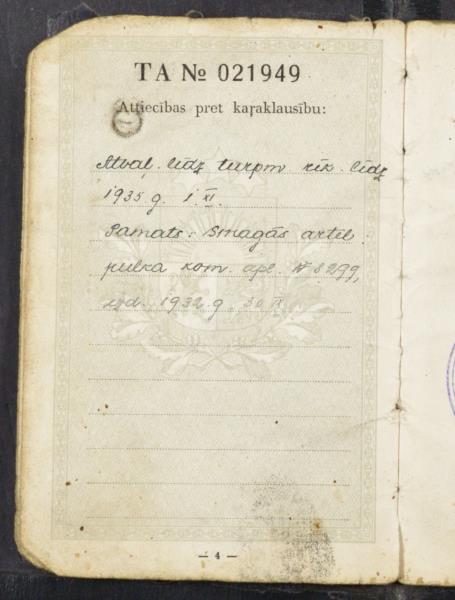 TA № 021949
Attiecības pret kaŗaklausību:
Atvaļ. līdz turpm rīk. līdz
1935 g. 1. XI.
Pamats: Smagās artil.
pulka kom. apl. № 8299,
izd. 1932 g. 30 IX
— 4 —